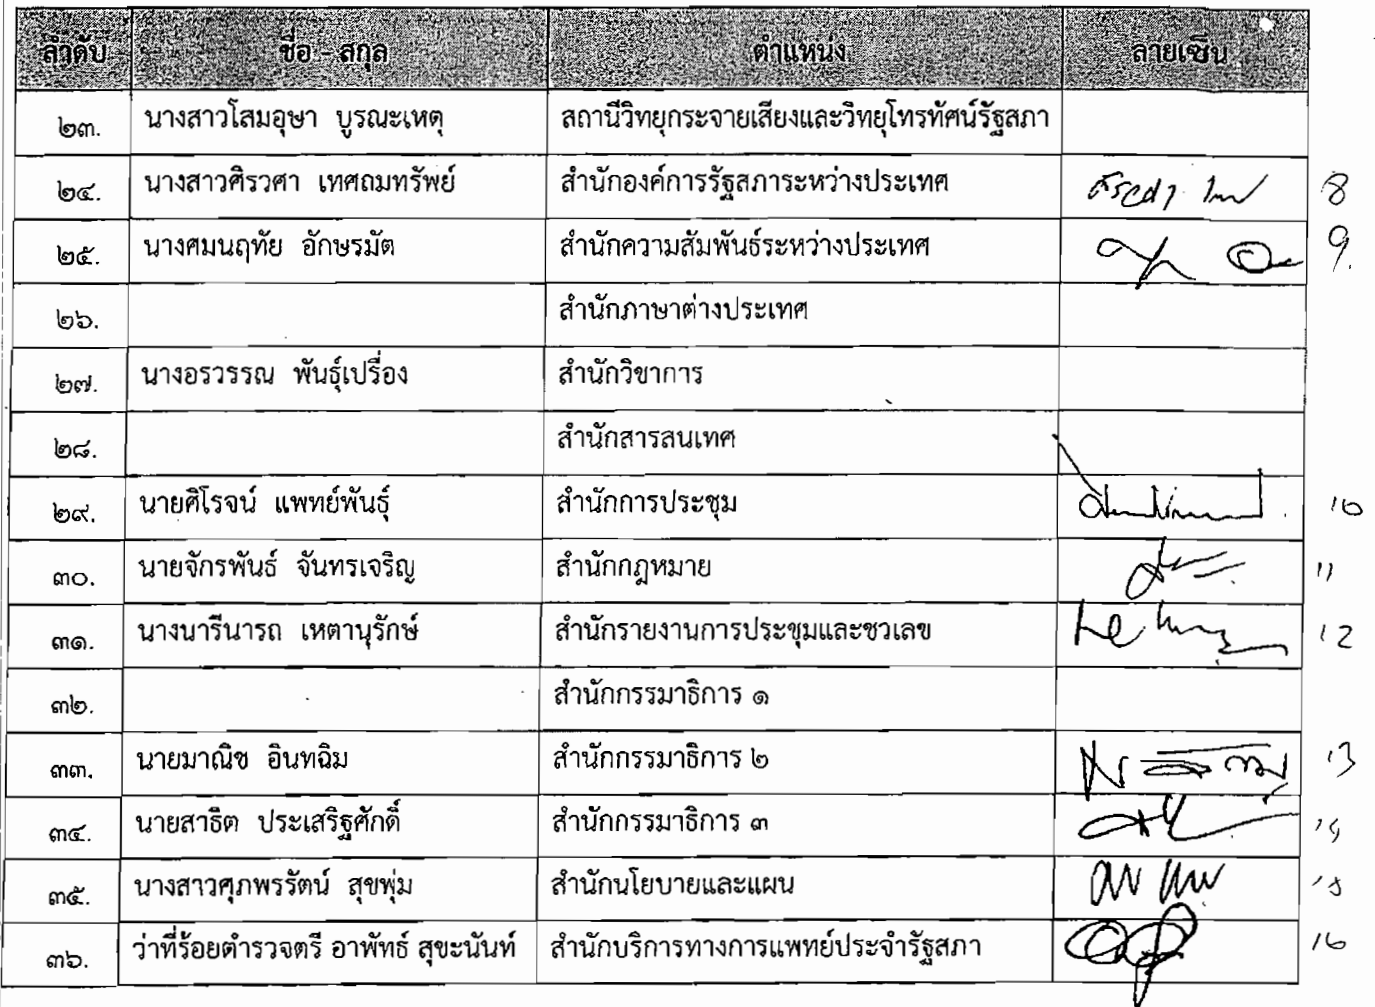 ลำดับ ชื่อ - สกุล ตำแหน่ง ลายเซ็น
๒๓. นางสาวโสมอุษา บูรณะเหตุ สถานีวิทยุกระจายเสียงและวิทยุโทรทัศน์รัฐสภา
๒๔. นางสาวศิรวศา เทศถมทรัพย์ สำนักองค์การรัฐสภาระหว่างประเทศ 8
๒๕. นางศมนฤทัย อักษรมัต สำนักความสัมพันธ์ระหว่างประเทศ 9.
๒๖. สำนักภาษาต่างประเทศ
๒๗. นางอรวรรณ พันธุ์เปรื่อง สำนักวิชาการ
๒๘. สำนักสารสนเทศ
๒๙. นายศิโรจน์ แพทย์พันธุ์ สำนักการประชุม 10
๓๐. นายจักรพันธ์ จันทรเจริญ สำนักกฎหมาย 11
๓๑. นางนารีนารถ เหตานุรักษ์ สำนักรายงานการประชุมและชวเลข 12
๓๒. สำนักกรรมาธิการ ๑
๓๓. นายมาณิช อินทฉิม สำนักกรรมาธิการ ๒ 13
๓๔. นายสาธิต ประเสริฐศักดิ์ สำนักกรรมาธิการ ๓ 14
๓๕. นางสาวศุภพรรัตน์ สุขพุ่ม สำนักนโยบายและแผน 15
๓๖. ว่าที่ร้อยตำรวจตรี อาพัทธ์ สุขะนันท์ สำนักบริการทางการแพทย์ประจำรัฐสภา 16